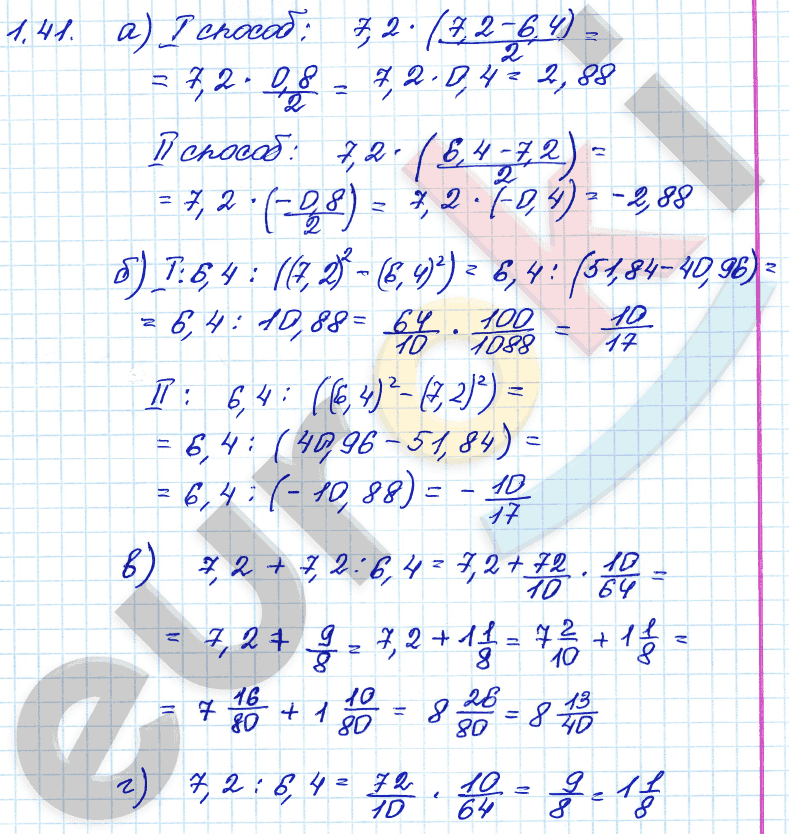 1.41. а) I способ: 7,2 · (7,2 − 6,4)/2 =
= 7,2 · 0,8/2 = 7,2 · 0,4 = 2,88
II способ: 7,2 · (6,4 − 7,2)/2 =
= 7,2 · (−0,8/2) = 7,2 · (−0,4) = −2,88
б) I: 6,4 : ((7,2)² − (6,4)²) = 6,4 : (51,84 − 40,96) =
= 6,4 : 10,88 = 64/10 · 100/1088 = 10/17
II: 6,4 : ((6,4)² − (7,2)²) =
= 6,4 : (40,96 − 51,84) =
= 6,4 : (−10,88) = − 10/17
в) 7,2 + 7,2 : 6,4 = 7,2 + 72/10 · 10/64 =
= 7,2 + 9/8 = 7,2 + 1 1/8 = 7 2/10 + 1 1/8 =
= 7 16/80 + 1 10/80 = 8 26/80 = 8 13/40
г) 7,2 : 6,4 = 72/10 · 10/64 = 9/8 = 1 1/8
euroki